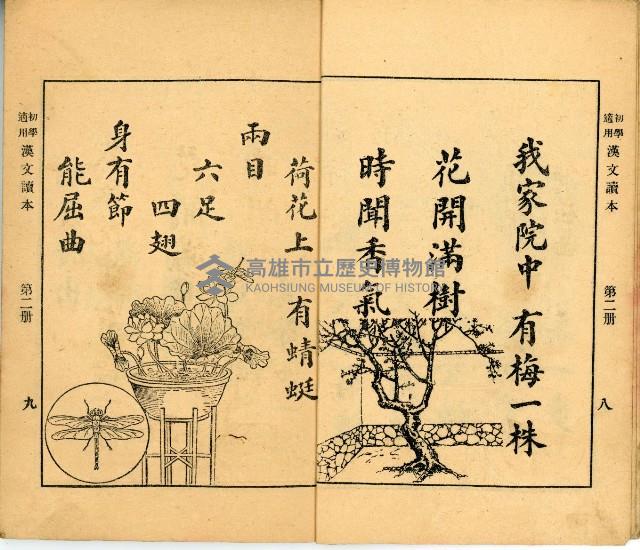 初學適用 漢文讀本 第二册 八
我家院中 有梅一株
花開滿樹
時聞香氣
荷花上 有蜻蜓
兩目
六足
四翅
身有節
能屈曲
初學適用 漢文讀本 第二册 九
高雄市立歷史博物館
KAOHSIUNG MUSEUM OF HISTORY